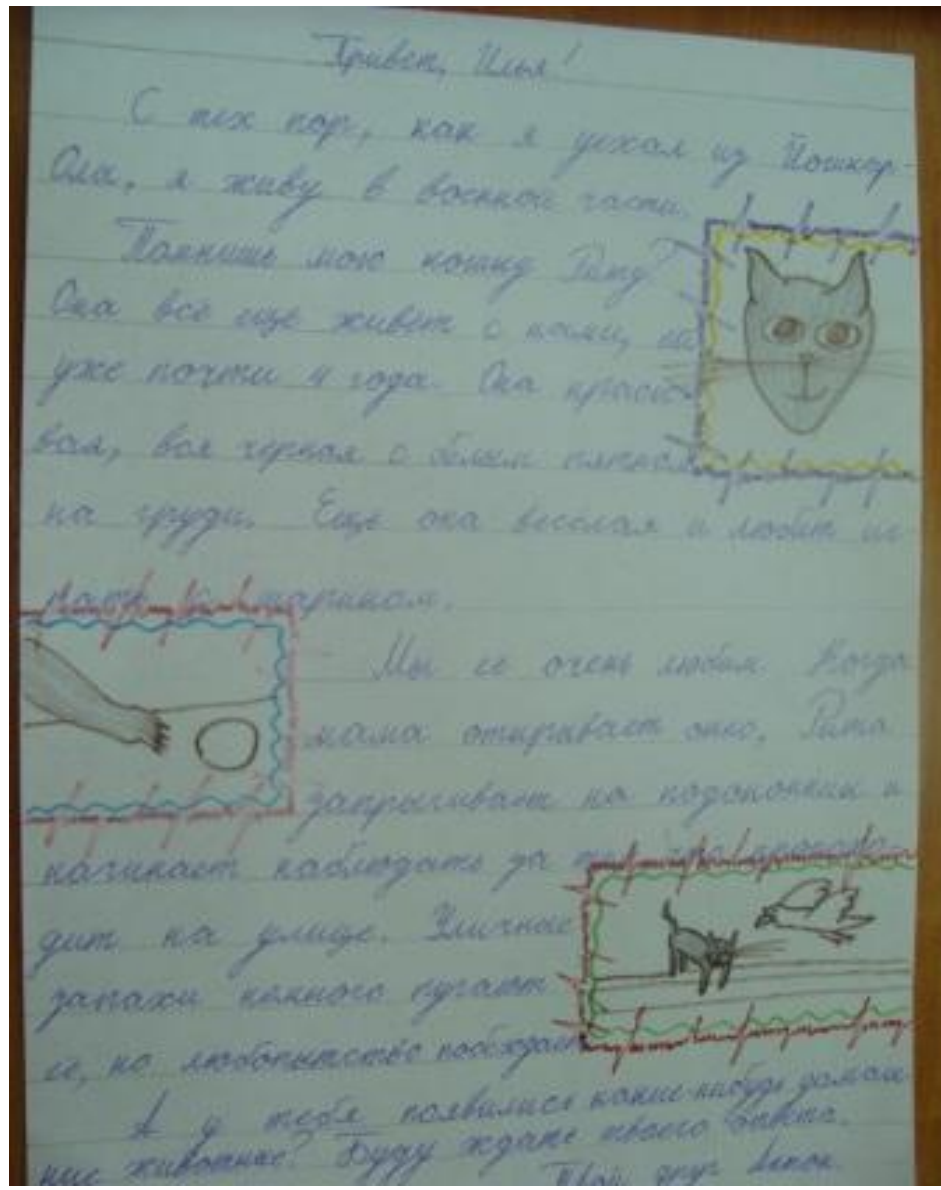 Привет, Илья!
С тех пор, как я уехал из Йошкар-
Ола, я живу в военной части.
Помнишь мою кошку Риту?
Она все еще живет с нами, ей
уже почти 4 года. Она краси-
вая, вся черная с белым пятном
на груди. Еще она веселая и любит иг
рать с шариком.
Мы ее очень любим. Когда
мама открывает окно, Рита
запрыгивает на подоконник и
начинает наблюдать за тем, что происхо-
дит на улице. Уличные
запахи немного пугают
ее, но любопытство побеждает
А у тебя появились какие-нибудь домаш
ние животные? Буду ждать твоего ответа.
Твой друг Антон.